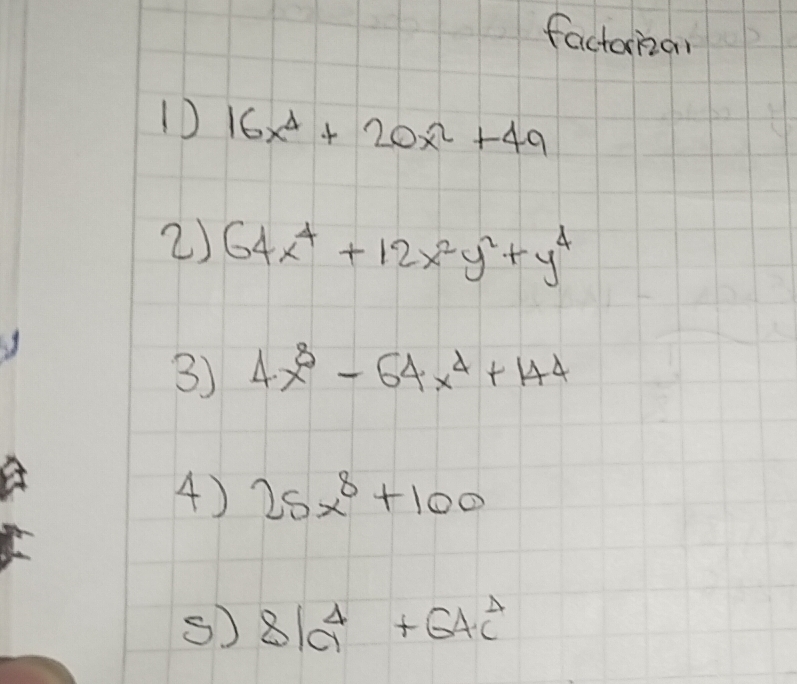 factorizar
1) 16x⁴ + 20x² + 49
2) 64x⁴ + 12x²y² + y⁴
3) 4x⁸ - 64x⁴ + 144
4) 25x⁸ + 100
5) 81a⁴ + 64c⁴